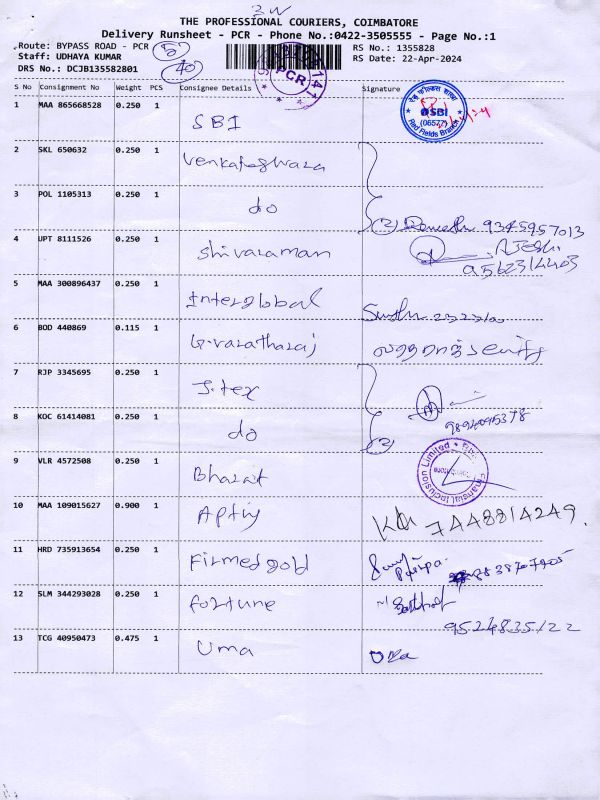 3 W
THE PROFESSIONAL COURIERS, COIMBATORE
Delivery Runsheet - PCR - Phone No.:0422-3505555 - Page No.:1
Route: BYPASS ROAD - PCR
RS No.: 1355828
Staff: UDHAYA KUMAR
RS Date: 22-Apr-2024
DRS No.: DCJB135582801
40
PCR
S No Consignment No Weight PCS Consignee Details Signature
1 MAA 865668528 0.250 1 SBI
SBI
(06577)
Red Fields Branch
2 SKL 650632 0.250 1 Venkateshwara
3 POL 1105313 0.250 1 do
(2) 9345957013
4 UPT 8111526 0.250 1 Shivaraman
9562314403
5 MAA 300896437 0.250 1 Interglobal
6 BOD 440869 0.115 1 G.varatharaj
7 RJP 3345695 0.250 1 J.tex
8 KOC 61414081 0.250 1 do
(2)
9 VLR 4572508 0.250 1 Bharat
Financial Inclusion Limited
10 MAA 109015627 0.900 1
7448814249.
11 HRD 735913654 0.250 1 Firmedgold
12 SLM 344293028 0.250 1 fortune
9524835122
13 TCG 40950473 0.475 1 Uma
Uma